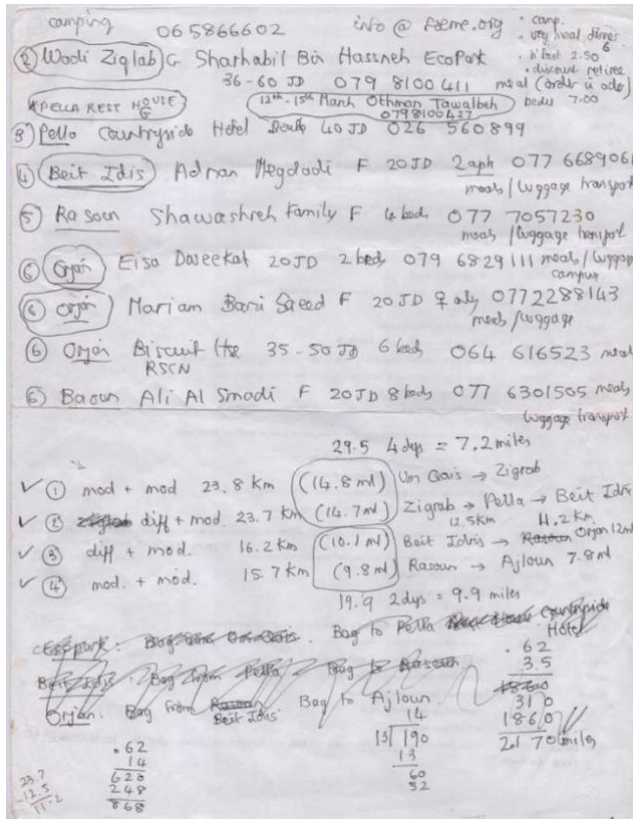 camping 065866602 info @ foeme.org • camp.
• veg meal dinner 6
② Wadi Ziqlab G Sharhabil Bin Hassneh EcoPark • b'fast 2.50
• discount retiree
36-60 JD 079 8100 411 meal (order in adv)
PELLA REST HOUSE G 12th-15th March Othman Tawalbeh bedu 7.00
0798100427
③ Pella Countryside Hotel Double 40 JD 026 560899
④ Beit Idis Adnan Megdadi F 20JD 2 apt 077 6689061
meals / luggage transport
⑤ Rasoun Shawashreh Family F 4 beds 077 7057230
meals / luggage transport
⑥ Orjan Eisa Dweekat 20JD 2 beds 079 6829111 meals / luggage
camping
⑥ Orjan Mariam Bani Saeed F 20JD ♀ only 0772288143
meals / luggage
⑥ Orjan Biscuit Hse 35-50 JD 6 beds 064 616523 meals
RSCN
⑥ Baoun Ali Al Smadi F 20JD 8 beds 077 6301505 meals
luggage transport
29.5 4 dys = 7.2 miles
✓ ① mod + mod 23.8 km (14.8 ml) Um Qais → Zigrab
✓ ② diff + mod. 23.7 km (14.7 ml) Zigrab → Pella → Beit Idris
12.5km 11.2km
✓ ③ diff + mod. 16.2 km (10.1 ml) Beit Idris → Rasoun Orjan 12ml
✓ ④ mod. + mod. 15.7 km (9.8 ml) Rasoun → Ajloun 7.8 ml
19.9 2 dys = 9.9 miles
Ecopark: Bag Bag to Pella Countryside
Hotel
Beit Idis: Bag from Pella - Bag to Rasoun
Orjan. Bag from Rasoun Bag to Ajloun.
Beit Idris
.62
3.5
310
1860
2170 miles
14
13 190
13
60
52
.62
14
620
248
868
23.7
-12.5
11.2